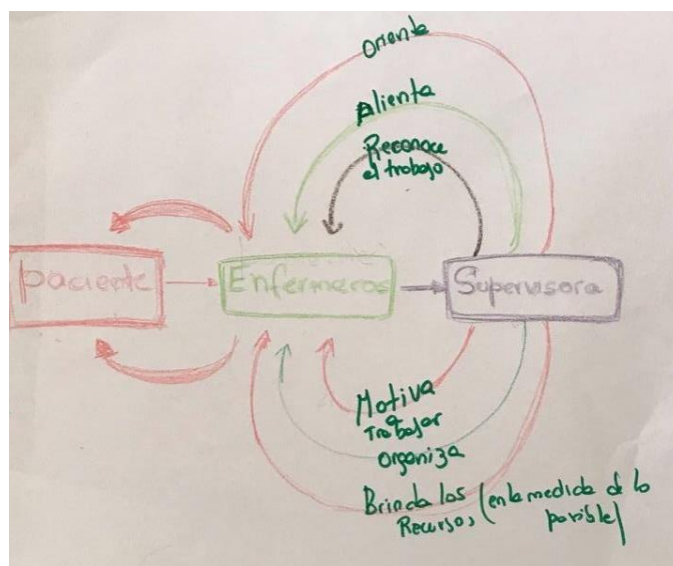 Orienta
Alienta
Reconoce
el trabajo
paciente
Enfermeros
Supervisora
Motiva
a
Trabajar
Organiza
Brinda los (en la medida de lo
Recursos, posible)